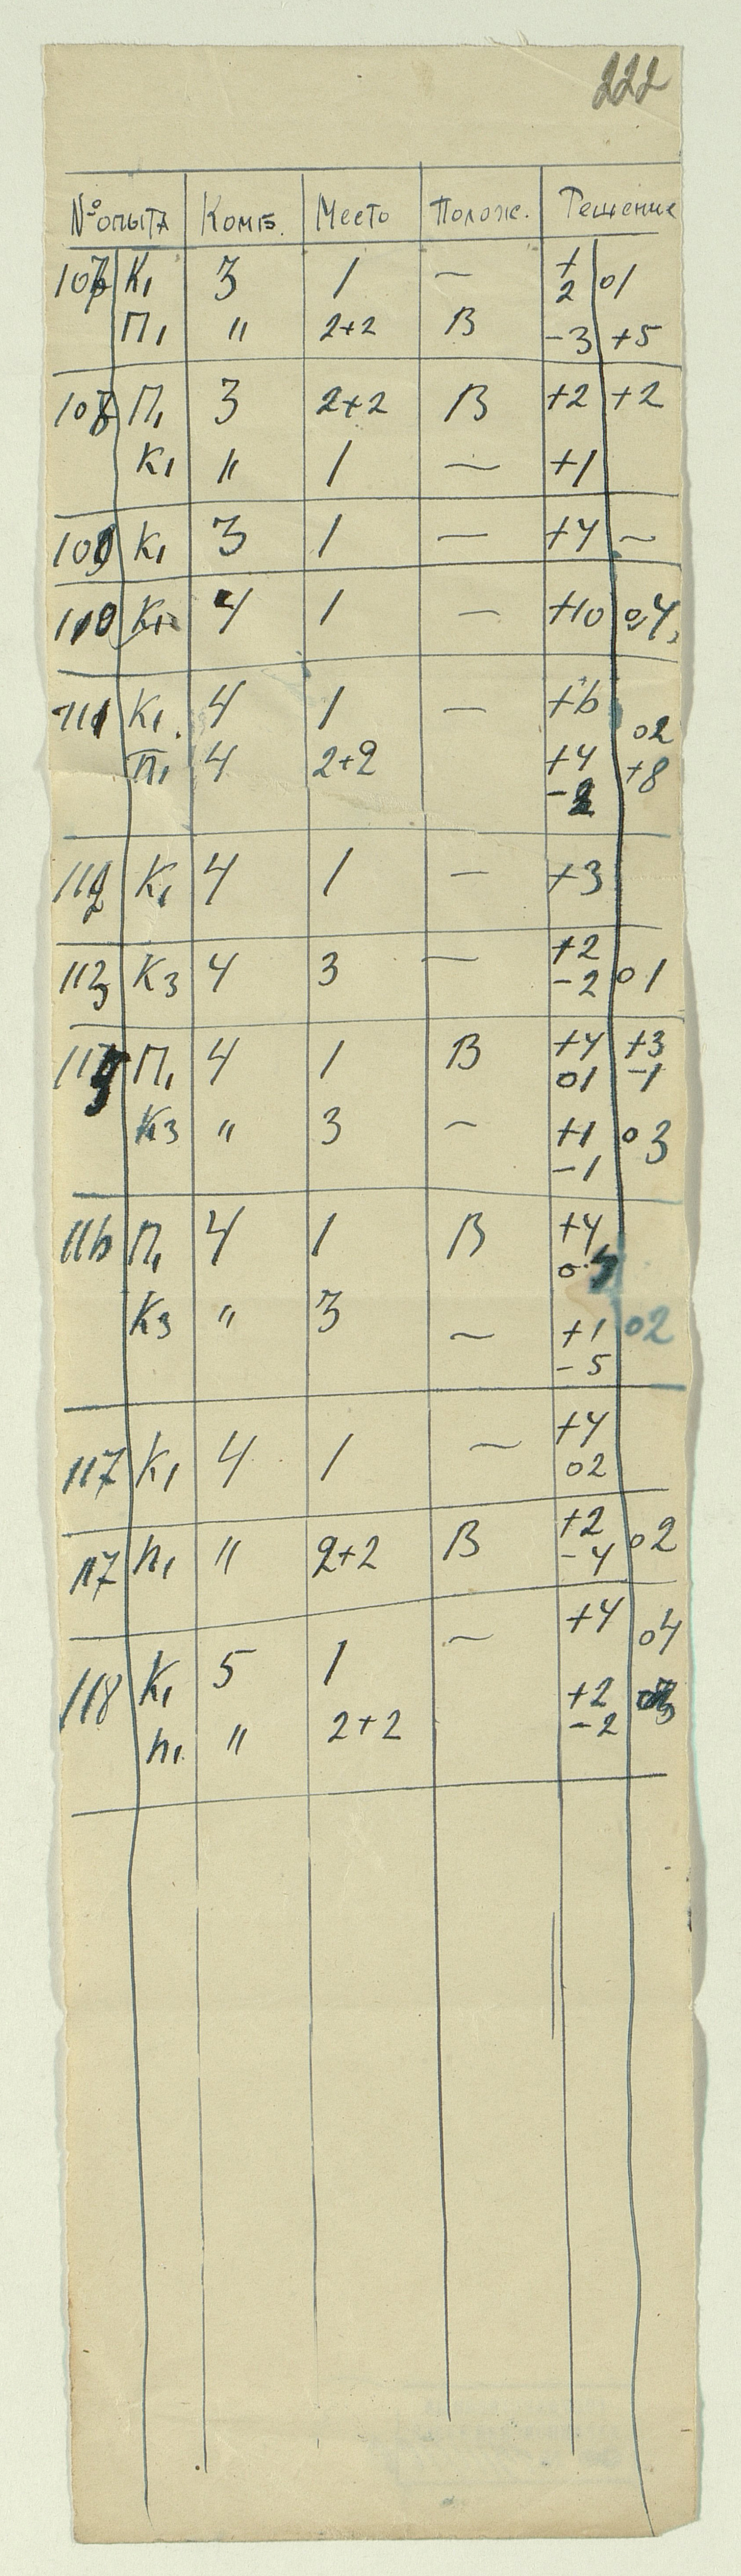 222
№ опыта Комб. Место Полож. Решение
107 К1 3 1 — + 2 01
П1 " 2+2 В -3 +5
108 П1 3 2+2 В +2 +2
К1 " 1 — +1
109 К1 3 1 — +4 —
110 К1 4 1 — +10 04
111 К1. 4 1 — +6 02
П1 4 2+2 +4 +8
-2
112 К1 4 1 — +3
113 К3 4 3 — +2
-2 01
П1 4 1 В +4 +3
01 -1
К3 " 3 — +1 03
-1
116 П1 4 1 В +4
К3 " 3 — +1 02
-5
117 К1 4 1 — +4
02
117 П1 " 2+2 В +2 02
-4
118 К1 5 1 — +4 04
П1 " 2+2 +2
-2